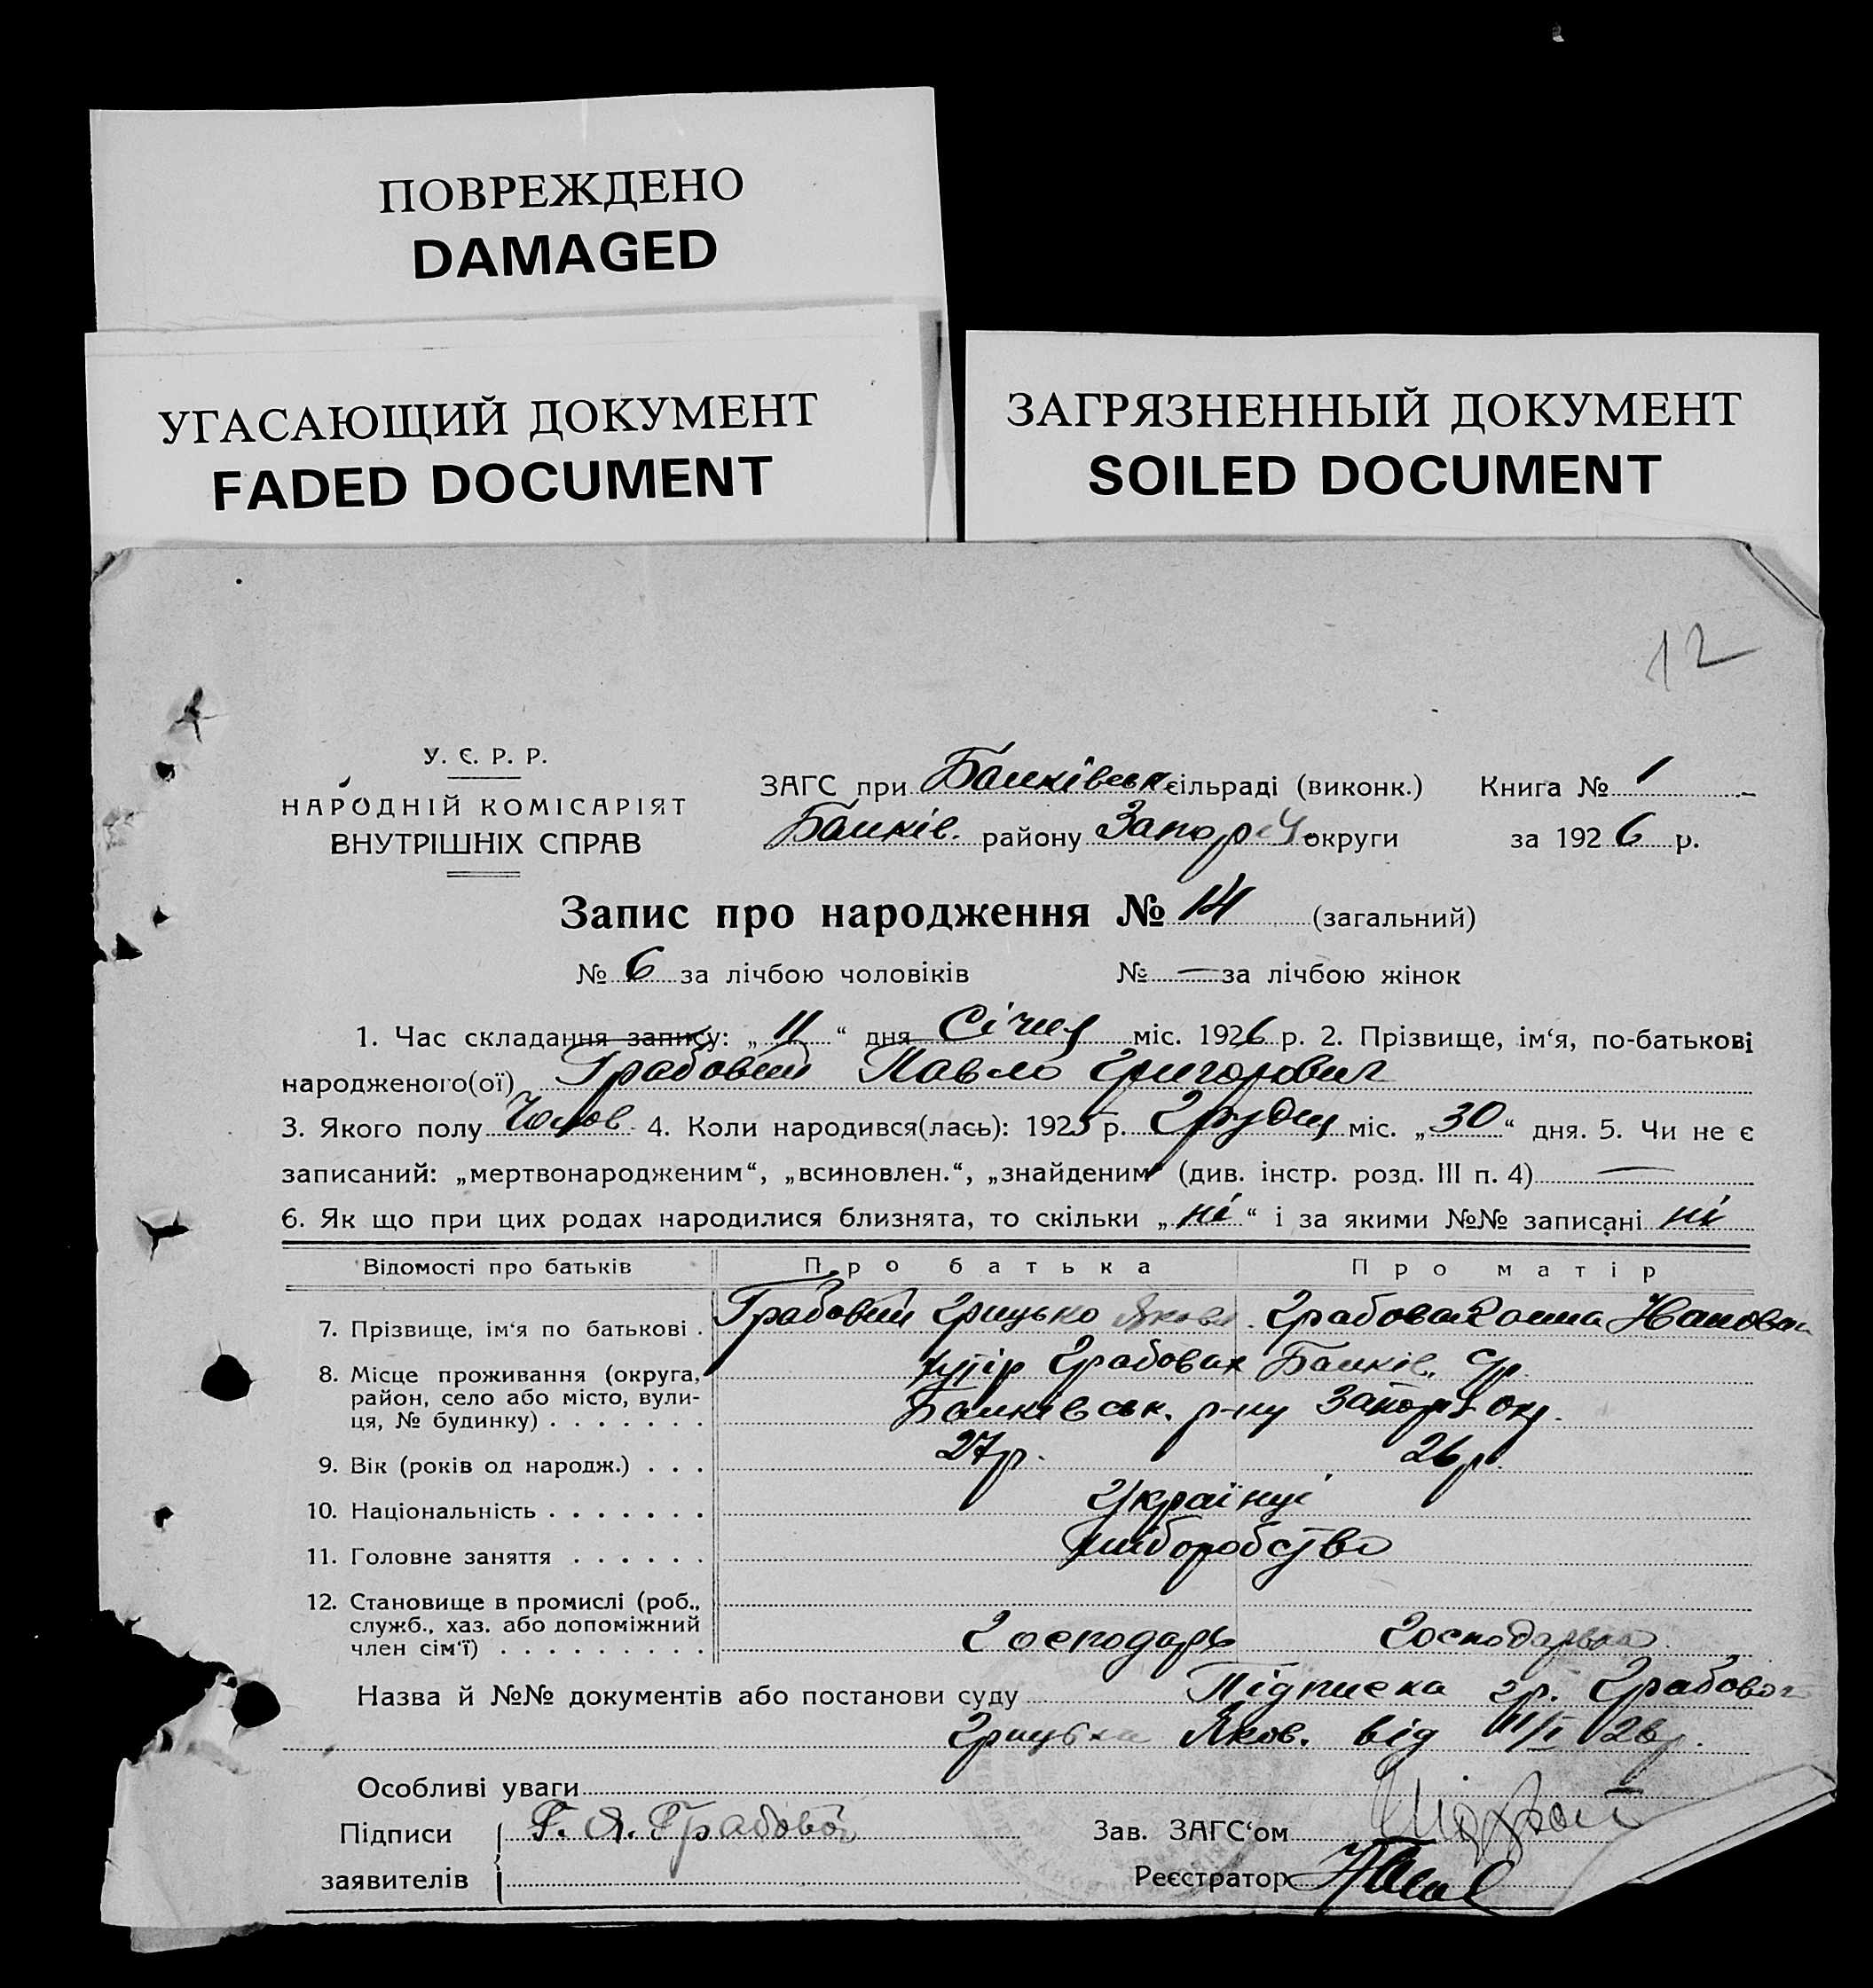 ПОВРЕЖДЕНО
DAMAGED
УГАСАЮЩИЙ ДОКУМЕНТ
FADED DOCUMENT
ЗАГРЯЗНЕННЫЙ ДОКУМЕНТ
SOILED DOCUMENT
12
У. Є. Р. Р.
НАРОДНІЙ КОМІСАРІЯТ
ВНУТРІШНІХ СПРАВ
ЗАГС при Балківськ сільраді (виконк.) Книга № 1
Балків. району Запор округи за 1926 р.
Запис про народження № 14 (загальний)
№ 6 за лічбою чоловіків № — за лічбою жінок
1. Час складання запису: „ 11 “ дня Січня міс. 1926 р. 2. Прізвище, ім‘я, по-батькові
народженого(ої) Грабовий Павло Григорович
3. Якого полу Чолов. 4. Коли народився(лась): 1925 р. Грудня міс. „ 30 “ дня. 5. Чи не є
записаний: „мертвонародженим“, „всиновлен.“, „знайденим“ (див. інстр. розд. III п. 4) —
6. Як що при цих родах народилися близнята, то скільки „ ні “ і за якими №№ записані ні
Відомості про батьків Про батька Про матір
7. Прізвище, ім‘я по батькові . Грабовий Грицько Яков. Грабовая Ганна Ивановна
8. Місце проживання (округа, хутір Грабовах Балків. с/р.
район, село або місто, вули-
ця, № будинку) . . . . . . . Балківськ. р-ну Запор окр.
9. Вік (років од народж.) . . . 27 р. 26 р.
10. Національність . . . . . . . Українці
11. Головне заняття . . . . . . хліборобство
12. Становище в промислі (роб.,
служб., хаз. або допоміжний
член сім‘ї) . . . . . . . . . Господарь Господарька
Назва й №№ документів або постанови суду Підписка гр. Грабового
Грицька Яков. від 11/I 26 р.
Особливі уваги
Підписи Г. Я. Грабовой Зав. ЗАГС‘ом
заявителів Реєстратор